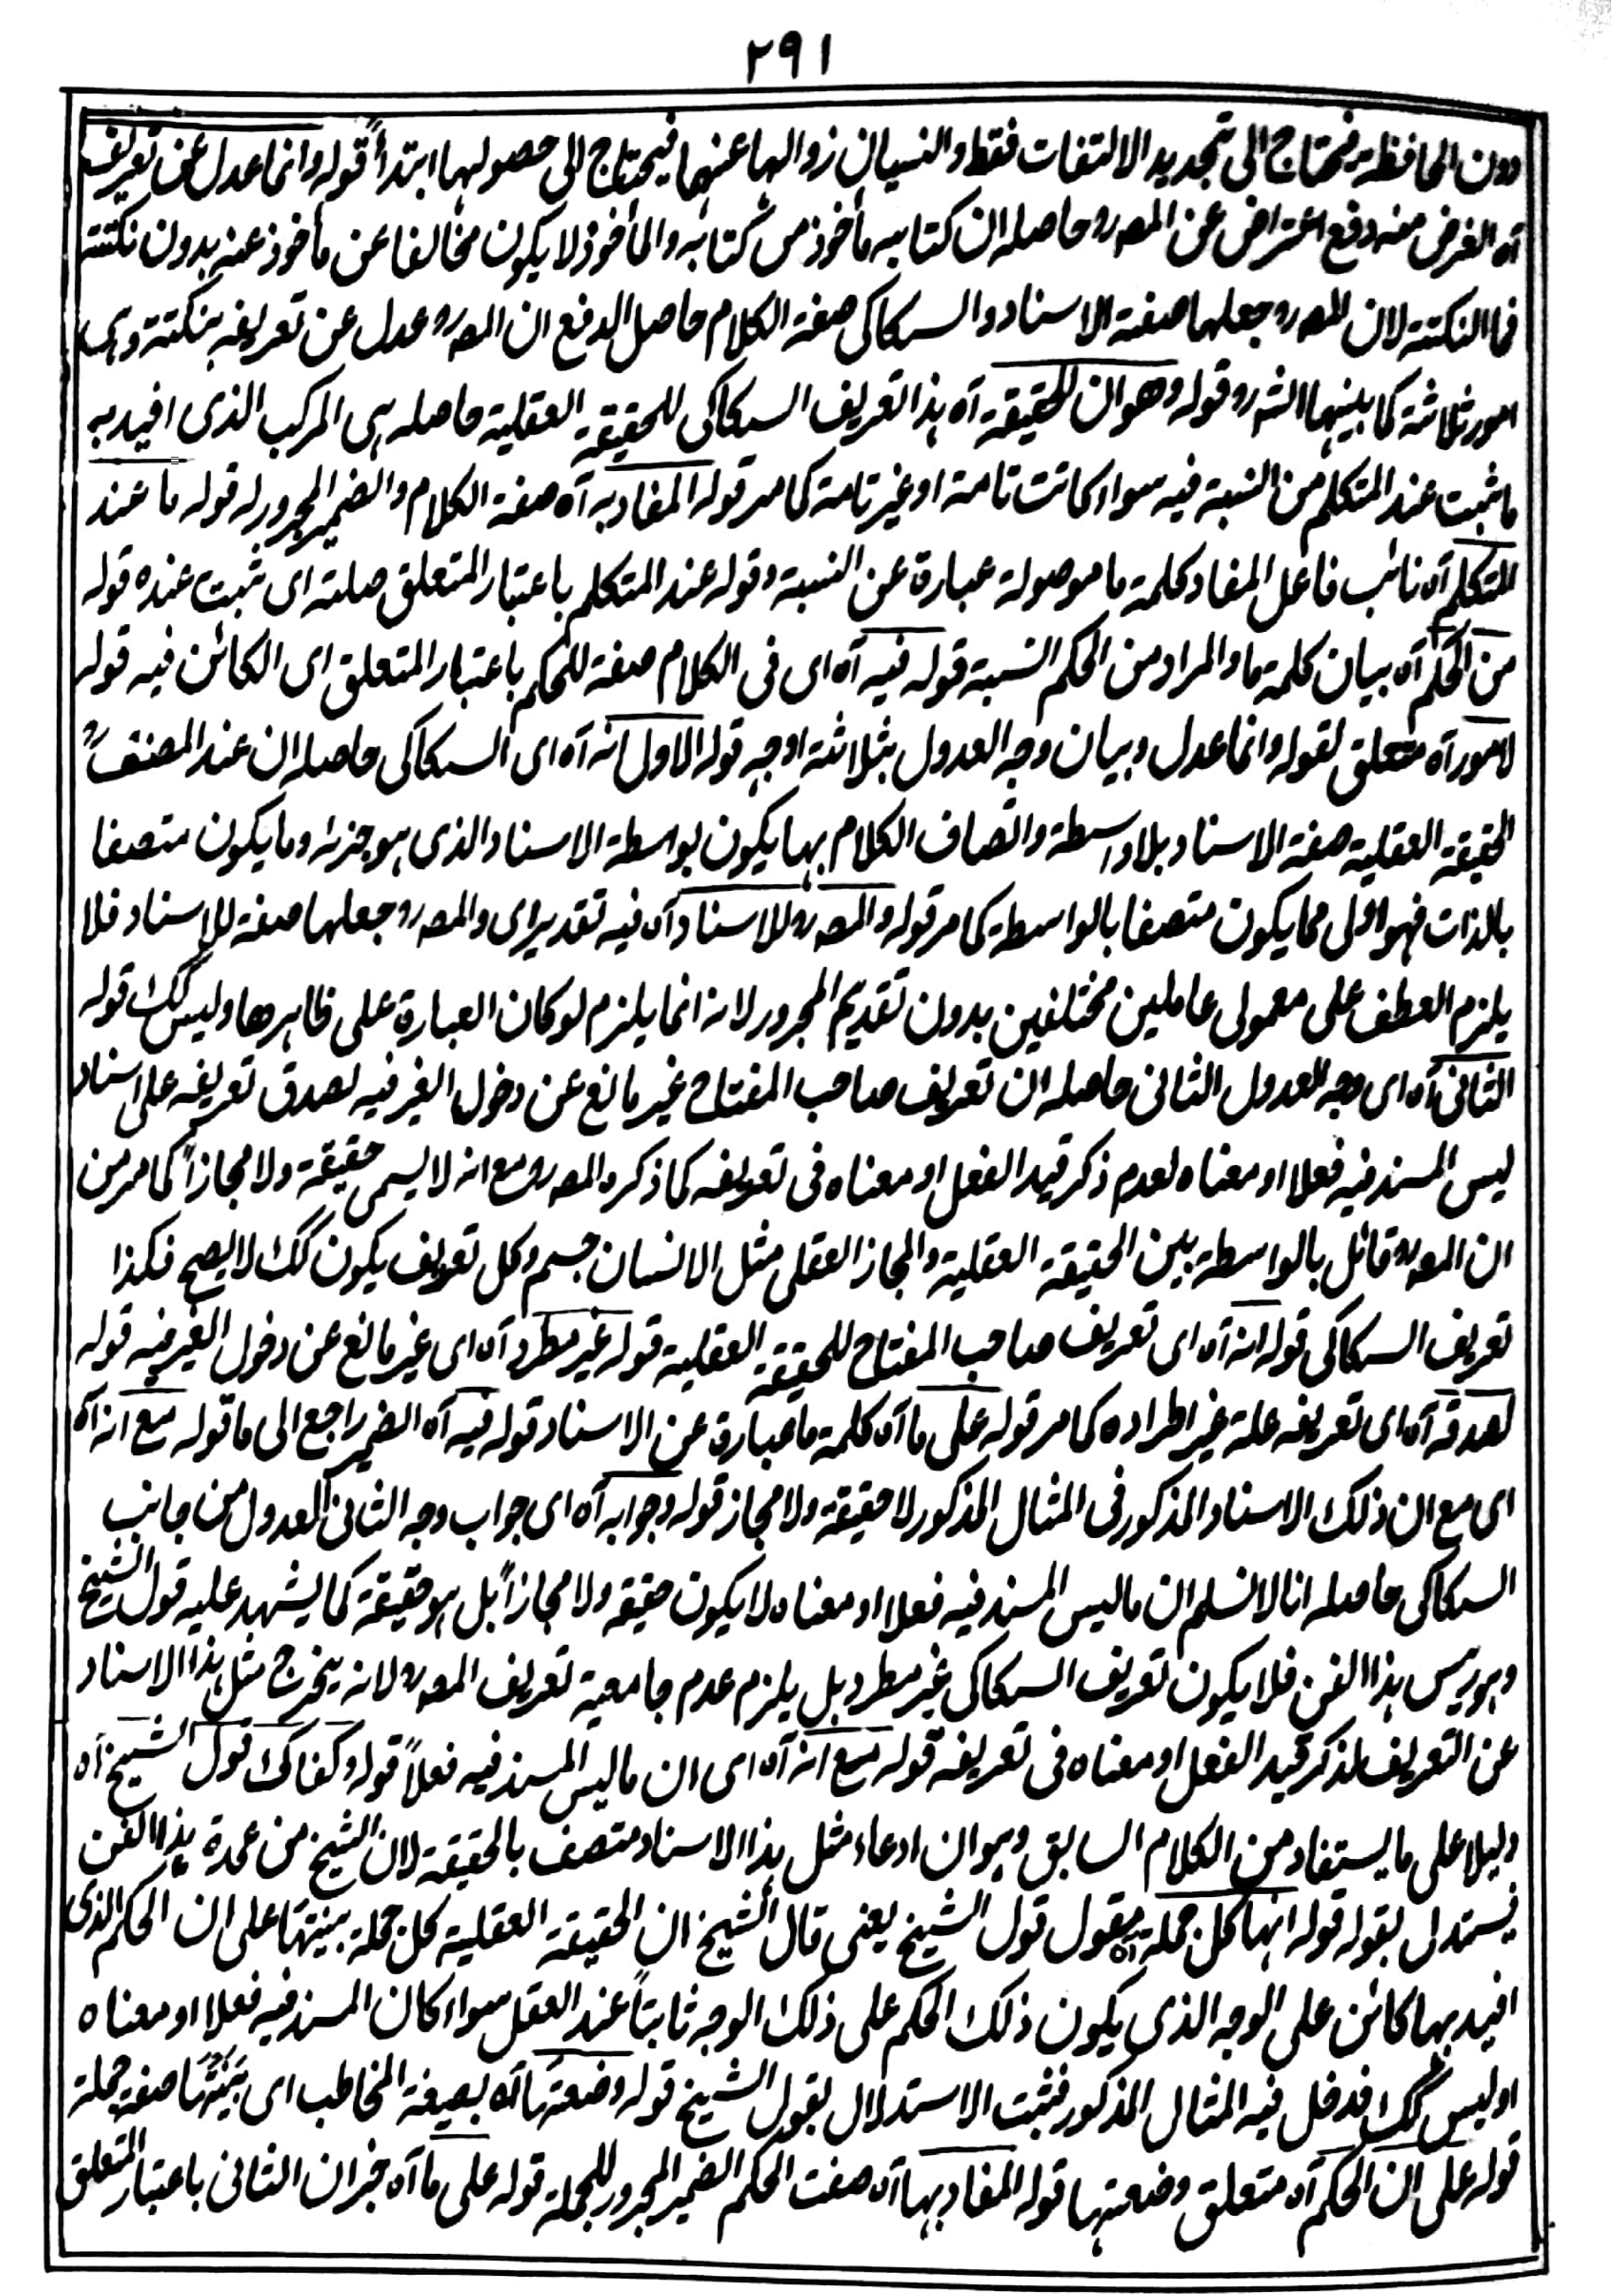 ٢٩١
دون الحافظة فيحتاج الى تجديد الالتفات فقط والنسيان زوالها عنهما فيحتاج الى حصولها ابتدأً قوله وانما عدل عن تعريف
آه الغرض منه دفع اعتراض عن المصـ رو حاصله ان كتابيه مأخوذ من كتابه والمأخوذ لا يكون مخالفا عن مأخوذ عنه بدون نكتته
فما النكتته لان المصـ رو جعلها صفة الاسناد و السكاكى صفة الكلام حاصل الدفع ان المصـ رو عدل عن تعريفه بنكتة وہى
امور ثلاثة كما بينها الشـ رو قوله وهوان الحقيقة آه ہذا تعريف السكاكى للحقيقة العقلية حاصله ہى المركب الذى افيد به
ما ثبت عند المتكلم من النسبة فيه سواء كانت تامة او غير تامة كما مر قوله المفاد به آه صفة الكلام والضمير المجرور له قوله ما عند
المتكلم آه نائب فاعل المفاد كلمة ما موصولة عبارة عن النسبة وقوله عند المتكلم باعتبار المتعلق صلته اى ثبت عنده قوله
من الحكم آه بيان كلمة ما والمراد من الحكم النسبة قوله فيه آه اى فى الكلام صفة للحكم باعتبار المتعلق اى الكائن فيه قوله
لامور آه متعلق لقوله وانما عدل وبيان وجه العدول بثلاثة اوجه قوله الاول انه آه اى السكاكى حاصله ان عند المصنفؒ
الحقيقة العقلية صفة الاسناد بلا واسطة واتصاف الكلام بها يكون بواسطة الاسناد الذى ہو جزئه وما يكون متصفا
بالذات فهو اولى مما يكون متصفا بالواسطة كما مر قوله والمصـ رو للاسناد آه فيه تقدير اى والمصـ رو جعلها صفة للاسناد فلا
يلزم العطف على معمولى عاملين مختلفين بدون تقديم المجرور لانه انما يلزم لو كان العبارة على ظاهرها وليس كك قوله
الثانى آه اى وجه العدول الثانى حاصله ان تعريف صاحب المفتاح غير مانع عن دخول الغير فيه لصدق تعريفه على اسناد
ليس المسند فيه فعلا او معناه لعدم ذكر قيد الفعل او معناه فى تعريفه كما ذكره المصـ رو مع انه لا يسمى حقيقة ولا مجازاً كما مر من
ان المصـ رو قائل بالواسطة بين الحقيقة العقلية والمجاز العقلى مثل الانسان جسم وكل تعريف يكون كك لا يصح فكذا
تعريف السكاكى قوله انه آه اى تعريف صاحب المفتاح للحقيقة العقلية قوله غير مطرد آه اى غير مانع عن دخول الغير فيه قوله
لصدقه آه اى تعريفه علة غير اطراده كما مر قوله على ما آه كلمة ما عبارة عن الاسناد قوله فيه آه الضمير راجع الى ما قوله مع انه آه
اى مع ان ذلك الاسناد المذكور فى المثال المذكور لا حقيقة ولا مجاز قوله وجوابه آه اى جواب وجه الثانى العدول من جانب
السكاكى حاصله انا لا نسلم ان ما ليس المسند فيه فعلا او معناه لا يكون حقيقة ولا مجازاً بل ہو حقيقة كما يشهد عليه قول الشيخ
وہو رئيس ہذا الفن فلا يكون تعريف السكاكى غير مطرد بل يلزم عدم جامعية تعريف المصـ رو لانه يخرج مثل ہذا الاسناد
عن التعريف لذكر قيد الفعل او معناه فى تعريفه قوله مع انه آه اى ان ما ليس المسند فيه فعلاً قوله وكفاك قول الشيخ آه
دليلا على ما يستفاد من الكلام السابق وہو ان ادعاء مثل ہذا الاسناد متصف بالحقيقة لان الشيخ من عمدة ہذا الفن
فيستدل بقوله قوله انها كل جملة آه مقول قول الشيخ يعنى قال الشيخ ان الحقيقة العقلية كل جملة بينتها على ان الحكم الذى
افيد بها كائن على الوجه الذى يكون ذلك الحكم على ذلك الوجه ثابتاً عند العقل سواء كان المسند فيه فعلا او معناه
او ليس كك فدخل فيه المثال المذكور فثبت الاستدلال بقول الشيخ قوله وضعتها آه بصيغة المخاطب اى بَيَّنْتَها صفة جملة
قوله على ان الحكم آه متعلق وضعتها قوله المفاد بها آه صفت الحكم الضمير المجرور للجملة قوله على ما آه خبر ان الثانى باعتبار المتعلق